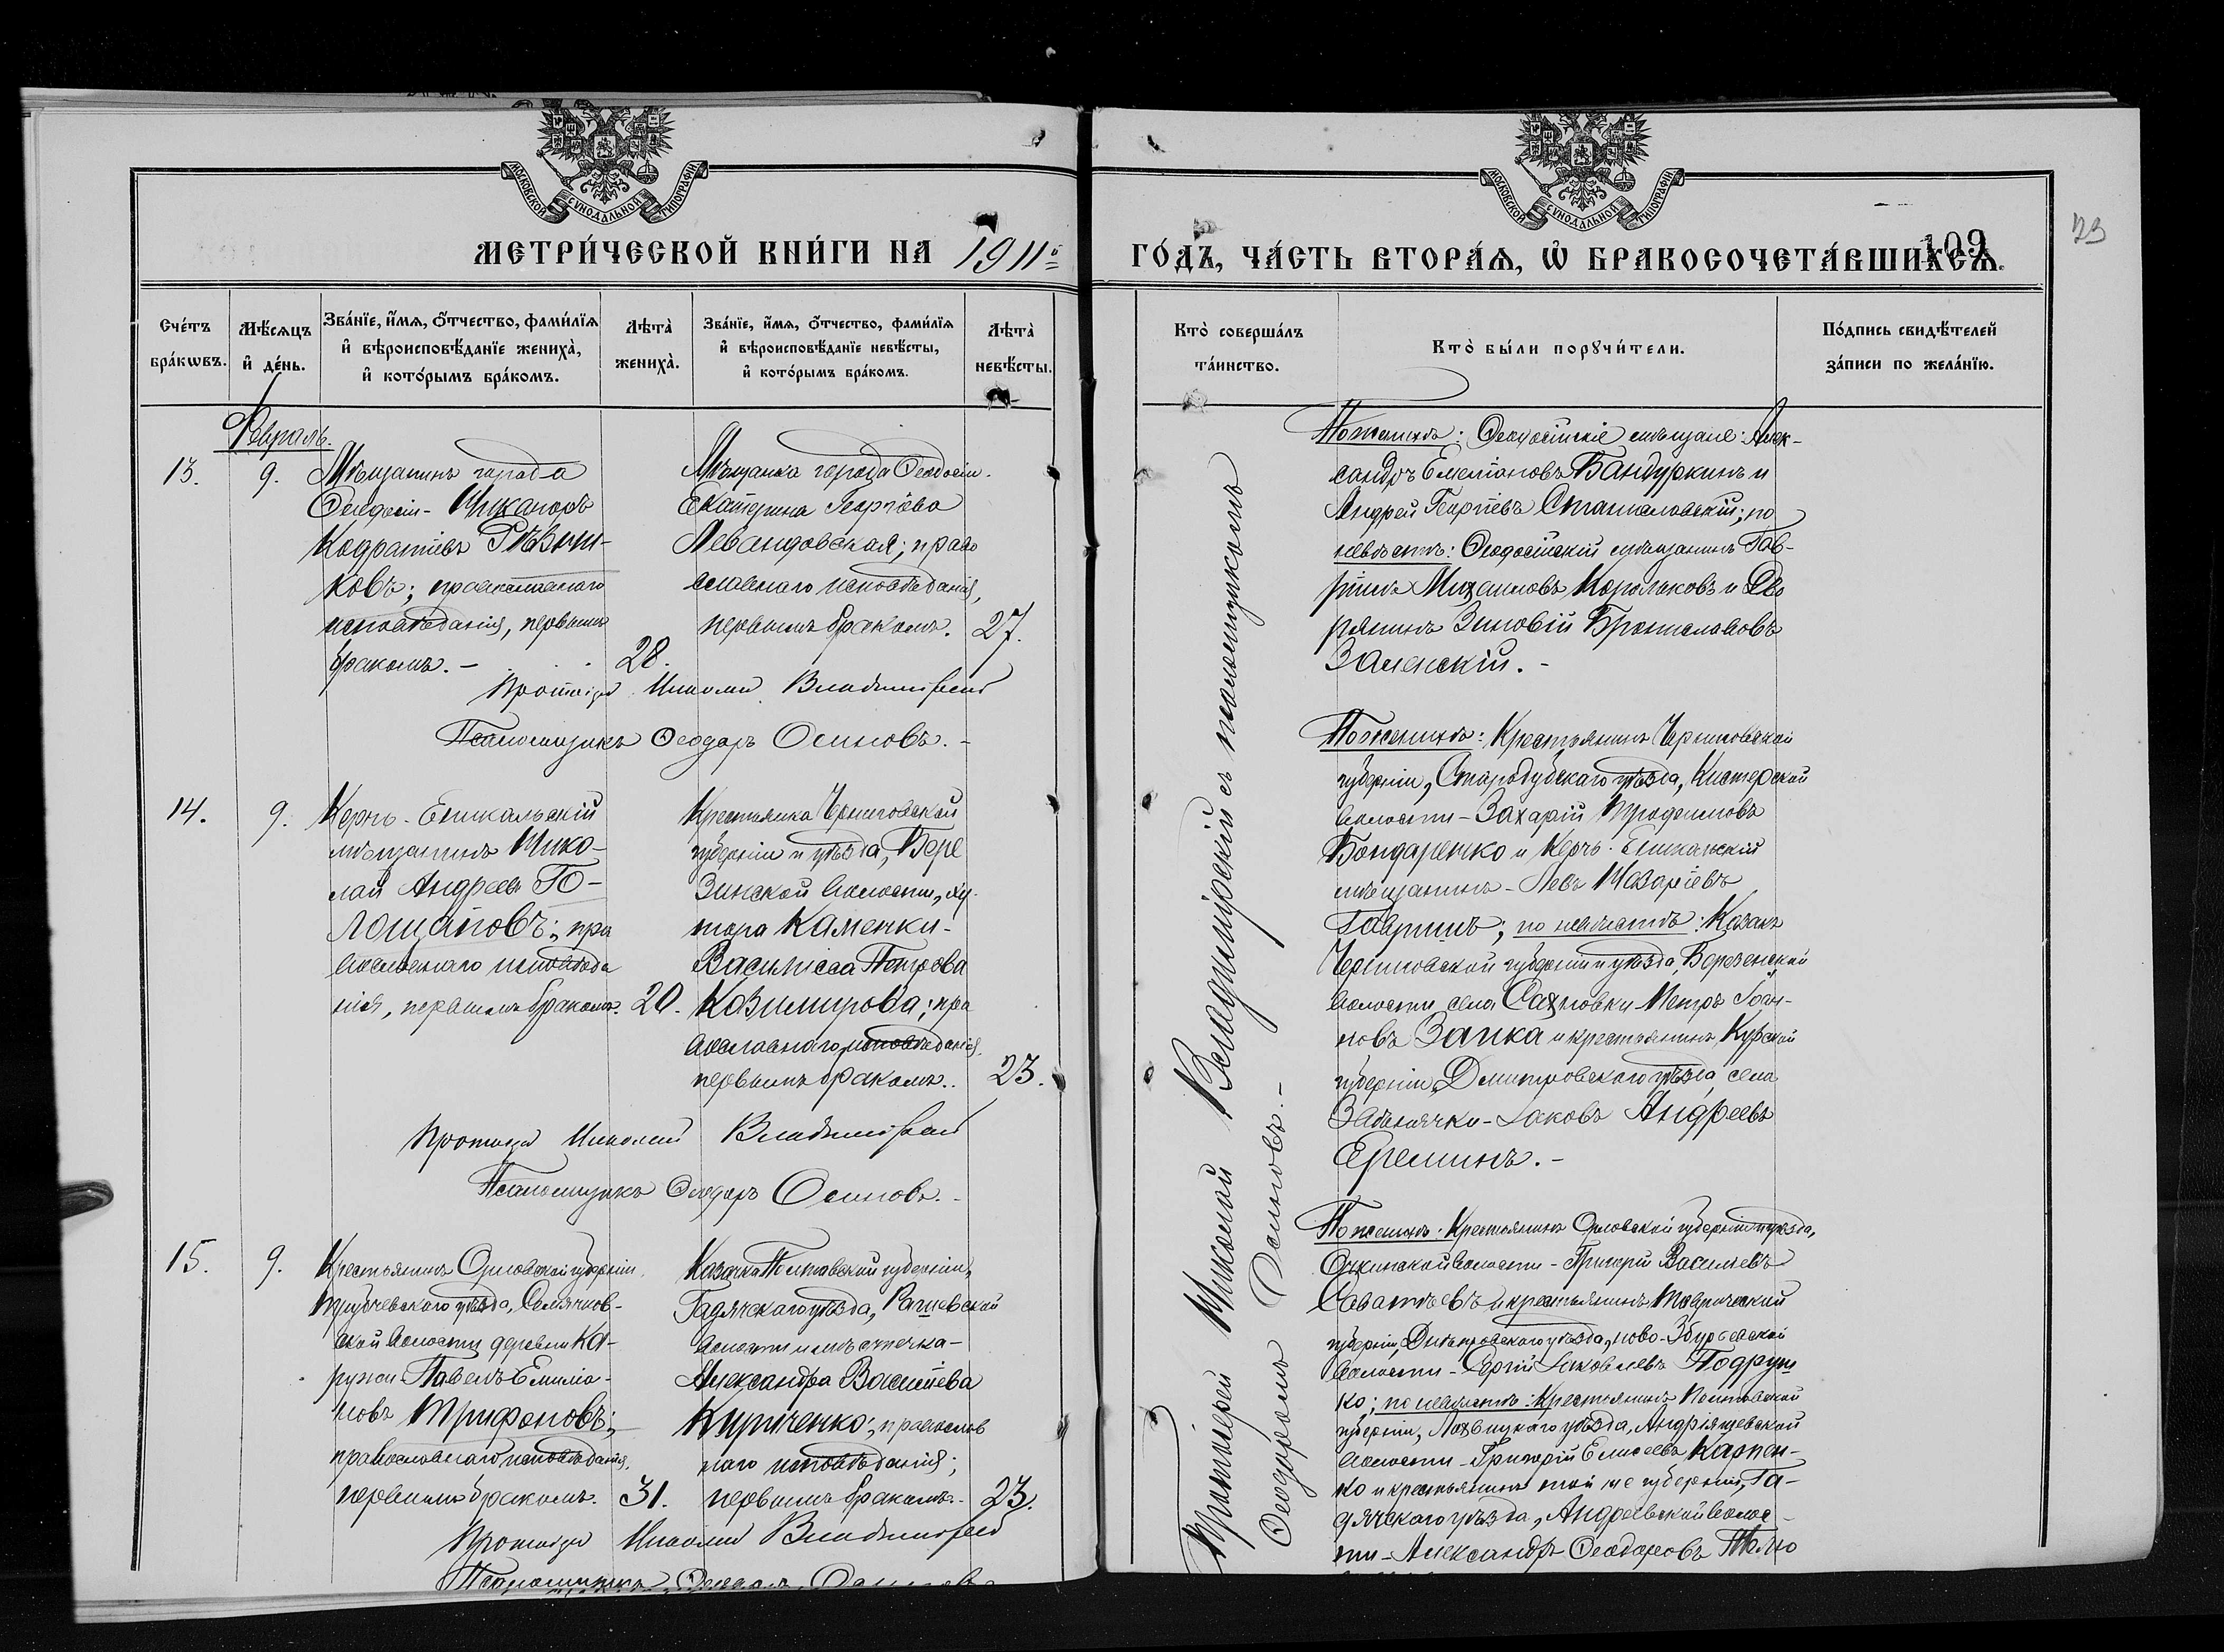 МОСКОВСКОЙ СѴНОДАЛЬНОЙ ТИПОГРАФІИ
МЕТРИ́ЧЕСКОЙ КНИ́ГИ НА 1911
Сче́тъ бра́кѡвъ.
Мѣ́сяцъ и҆ де́нь.
Зва́нїе, и҆́мѧ, ѻ҆́тчество, фами́лїѧ
и҆ вѣроисповѣ́данїе жениха̀,
и҆ кото́рымъ бра́комъ.
Лѣта̀ жениха̀.
Зва́нїе, и҆́мѧ, ѻ҆́тчество, фами́лїѧ
и҆ вѣроисповѣ́данїе невѣ́сты,
и҆ кото́рымъ бра́комъ.
Лѣта̀ невѣ́сты.
Февраль.
13.
9.
Мѣщанинъ города
Ѳеодосіи - Никаноръ
Кодратіевъ Рѣзни-
ковъ; православнаго
исповѣданія, первымъ
бракомъ. -
28.
Мѣщанка города Ѳеодосіи -
Екатерина Георгіева
Левандовская; право
славнаго исповѣданія,
первымъ бракомъ.
27.
Протоіер Николай Владимірскій
Псаломщикъ Ѳеодоръ Осиповъ. -
14.
9.
Керчь-Еникальскій
мѣщанинъ Нико-
лай Андреевъ Го-
лощаповъ; пра
вославнаго исповѣда
нія, первымъ бракомъ.
20.
Крестьянка Черниговской
губерніи и уѣзда, Бере
зинской волости, ху-
тора Каменки -
Василисса Петрова
Казимирова; пра
вославнаго исповѣданія,
первымъ бракомъ..
23.
Протоіер Николай Владимірскій
Псаломщикъ Ѳеодоръ Осиповъ. -
15.
9.
Крестьянинъ Орловской губерніи,
Трубчевскаго уѣзда, Селячков-
ской волости деревни Ка-
ружи Павелъ Емилiа-
новъ Трифоновъ;
православнаго исповѣданія,
первымъ бракомъ.
31.
Казачка Полтавской губерніи,
Гадячскаго уѣзда, Рашевской
волости и мѣстечка -
Александра Василіева
Кириченко; православ
наго исповѣданія;
первымъ бракомъ.
23.
Протоіер Николай Владимірскій
Псаломщикъ Ѳеодоръ Осиповъ
МОСКОВСКОЙ СѴНОДАЛЬНОЙ ТИПОГРАФІИ
ГО́ДЪ, ЧА́СТЬ ВТОРА́Ѧ, Ѡ҆ БРАКОСОЧЕТА́ВШИХСѦ.
109
23
Кто̀ соверша́лъ та́инство.
Кто̀ бы́ли порꙋчи́тели.
По́дпись свидѣ́телей
за́писи по жела́нїю.
Протоіерей Николай Владимірскій съ псаломщикомъ
Ѳеодоромъ Осиповъ. -
По женихѣ: Ѳеодосійскіе мѣщане: Алек-
сандръ Емеліановъ Бандуркинъ и
Андрей Георгіевъ Станиславскій; по
невѣстѣ: Ѳеодосійскій мѣщанинъ Гав-
ріилъ Михаиловъ Корольковъ и Дво
рянинъ Зиновій Брониславовъ
Заленскій. -
По женихѣ: Крестьянинъ Черниговской
губерніи, Стародубскаго уѣзда, Кистерской
волости - Захарій Трофимовъ
Бондаренко и Керчь-Еникальскій
мѣщанинъ - Левъ Назаріевъ
Гавришъ; по невѣстѣ: Казакъ
Черниговской губерніи и уѣзда, Березенской
волости села Сахновки - Петръ Іоан-
новъ Заика и крестьянинъ Курской
губерніи, Дмитровскаго уѣзда, села
- Іаковъ Андреевъ
Ереминъ. -
По женихѣ: Крестьянинъ Орловской губерніи и уѣзда,
волости - Григорій Васильевъ
Саватѣевъ и крестьянинъ Таврической
губерніи, Днѣпровскаго уѣзда, ново-Збурьевской
волости - Сергій Іаковлевъ
ко; по невѣстѣ: Крестьянинъ Полтавской
губерніи, Лохвицкаго уѣзда, Андріяшевской
волости - Григорій Елисеевъ Карпен-
ко и крестьянинъ той же губерніи, Га-
дячскаго уѣзда, Андреевской волос-
ти - Александръ Ѳеодоровъ